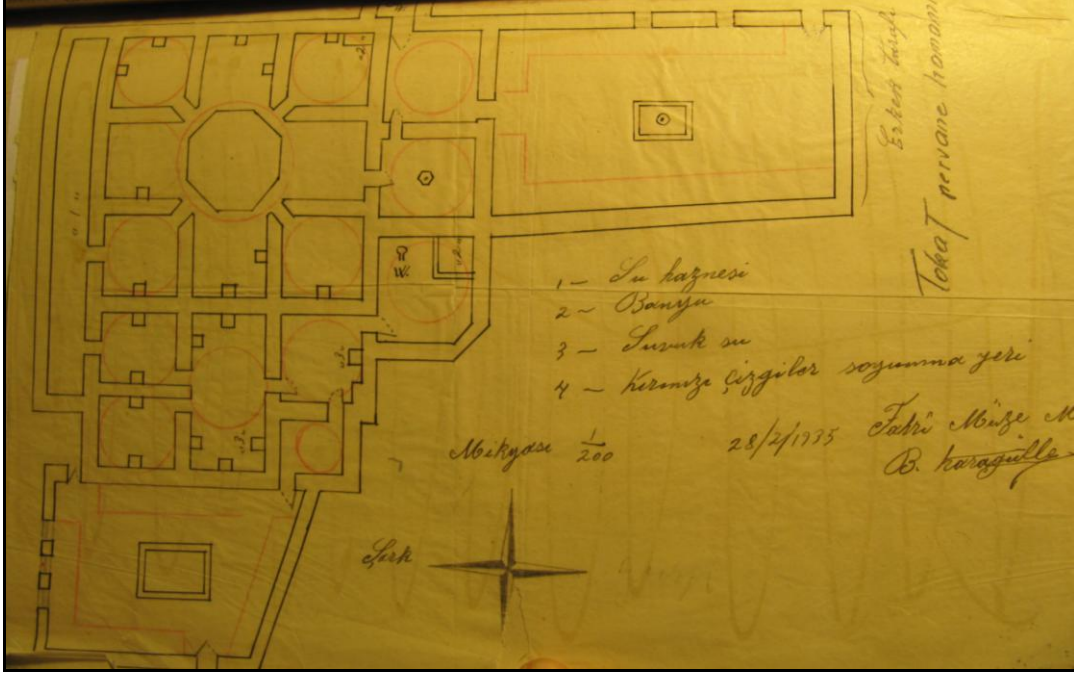 Erkek
Tokat pervane hamamı
1 - Su haznesi
2 - Banyu
3 - Suvuk su
4 - Kırmızı çizgiler soyunma yeri
Mikyası 1/200
28/2/1935
Fahrî Müze M
B. Karagülle
Şark
W.
"2"
"2"
"1"
"3"
"3"